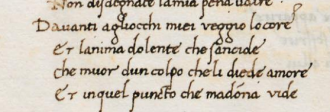 Non disdegnate la mia pena udire
Davanti agliocchi miei veggio lo core
Et lanima dolente che sancide
che muor dun colpo che li diede amore
Et in quel puncto che madõna vide